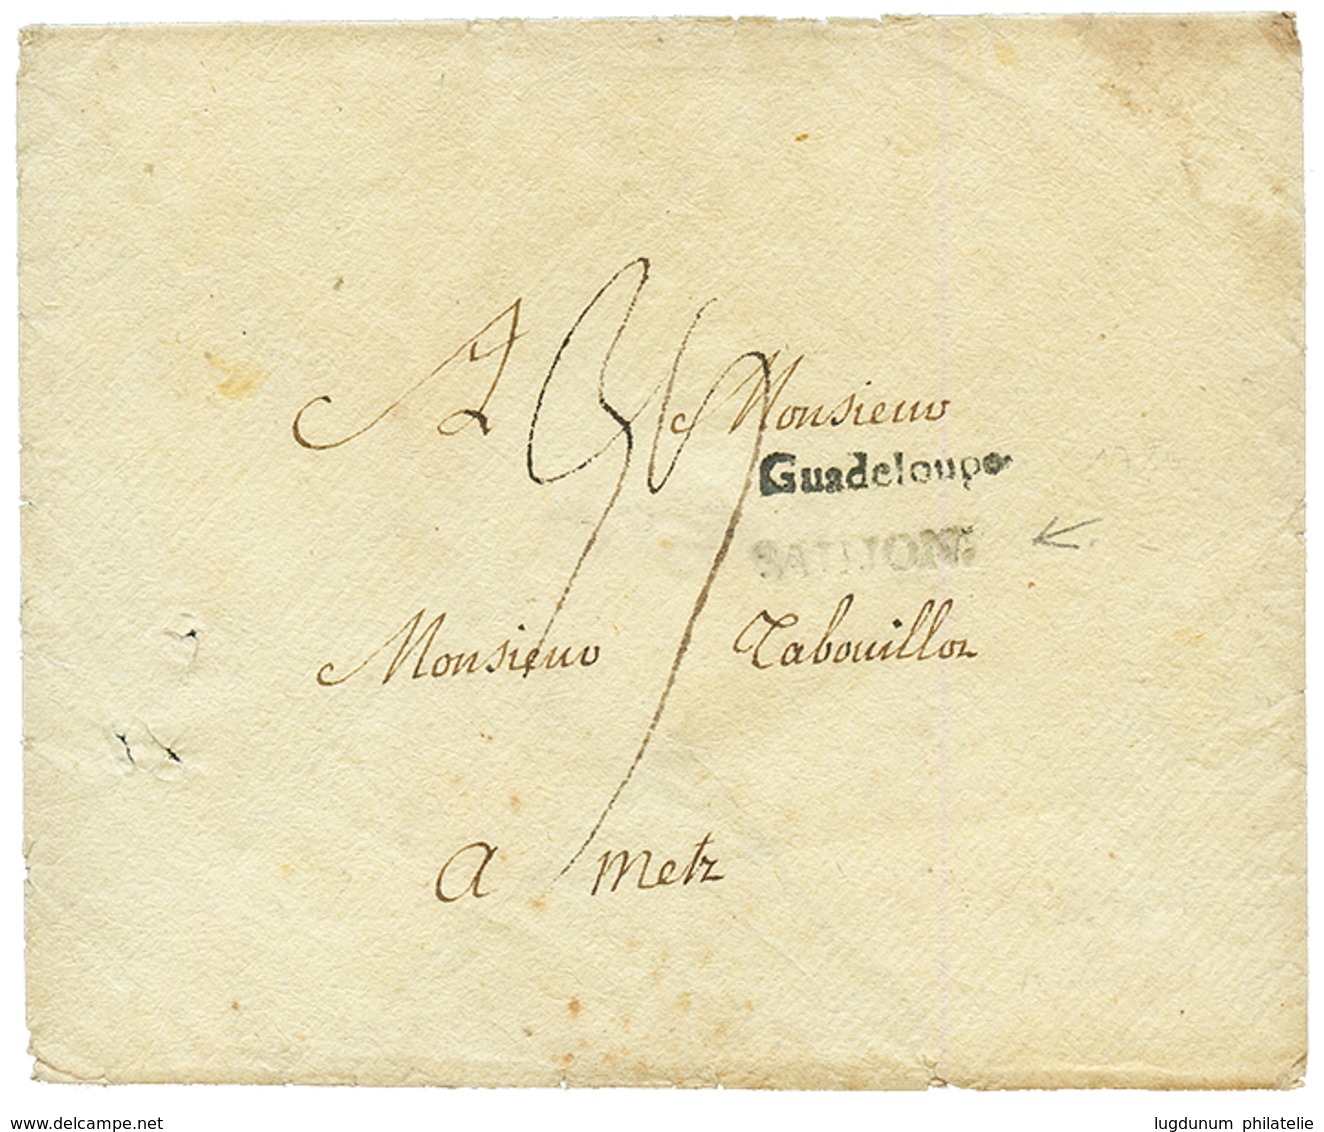 A Monsieur
Guadeloupe
Monsieur Tabouillot
a Metz
www.delcampe.net
lugdunum philatelie